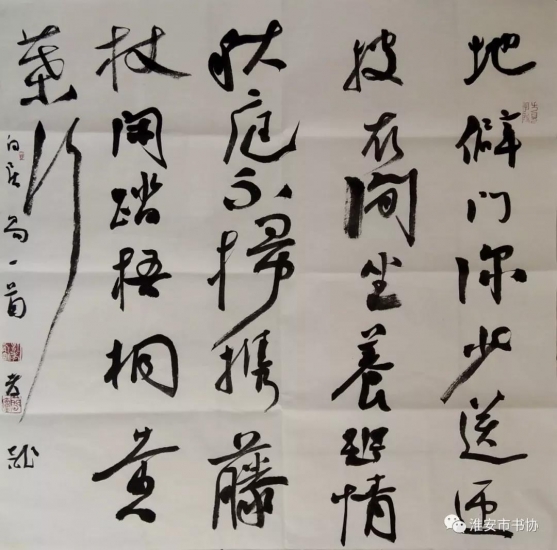 地僻门深少送迎
披衣閒坐養幽情
秋庭不掃携藤
杖閒踏梧桐黄
葉行
白居易一首
淮安市书协